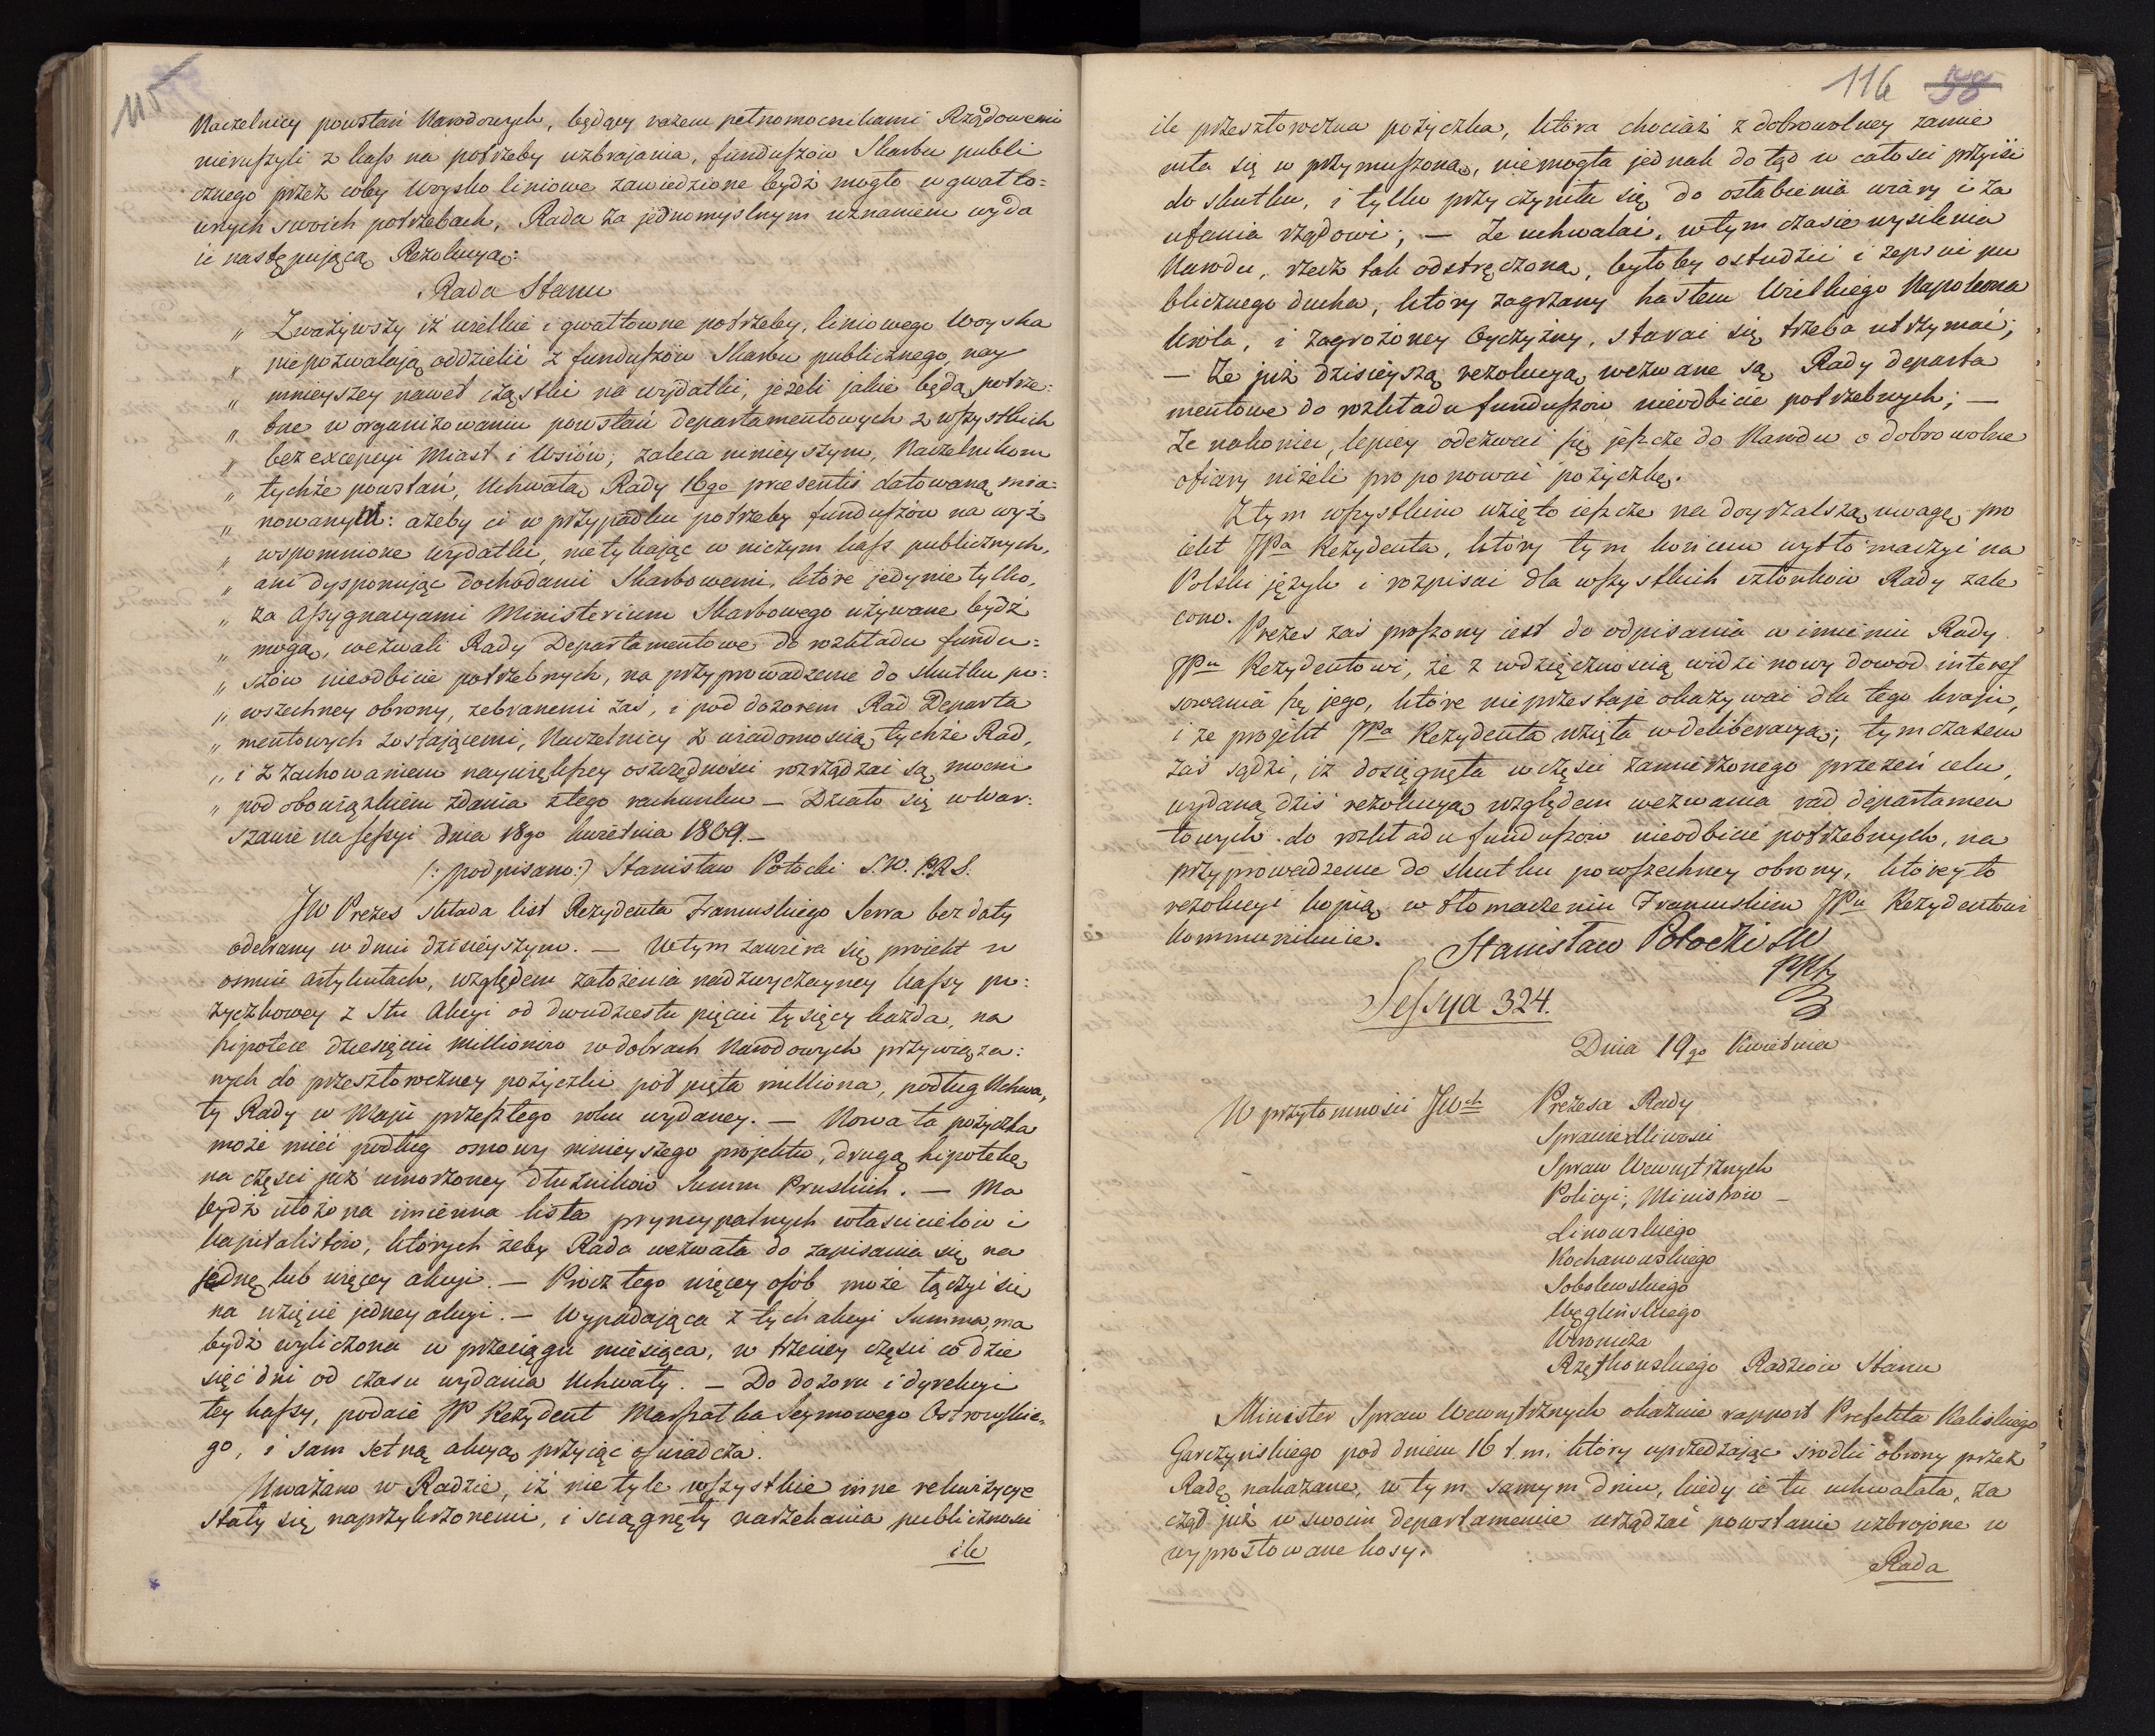 115
Naczelnicy powstań Narodowych, będący razem pełnomocnikami Rządowemi
nieruszyli z kass na potrzeby uzbrajania, funduszów Skarbu publi
cznego przez coby Woysko liniowe zawiedzione bydź mogło w gwałto=
wnych swoich potrzebach, Rada za jednomyslnym uznaniem wyda
ie następującą Rezolucyą:
Rada Stanu
„ Zważywszy iż wielkie i gwałtowne potrzeby, liniowego Woyska
„ niepozwalają oddzielić z funduszów Skarbu publicznego, nay
„ mnieyszey nawet cząstki na wydatki, jeżeli jakie będą potrze=
„ bne w organizowaniu powstań departamentowych z wszystkich
„ bez excepcyi Miast i Wsiów; zaleca ninieyszym, Naczelnikom
„ tychże powstań, Uchwałą Rady 16go praesentis datowaną mia=
„ nowanym: ażeby ci w przypadku potrzeby funduszów na wyż
„ wspomnione wydatki, nietykając w niczym kass publicznych,
„ ani dysponując dochodami Skarbowemi, które jedynie tylko,
„ za Assygnacyami Ministerium Skarbowego używane bydź
„ mogą, wezwali Rady Departamentowe do rozkładu fundu=
„ szów nieodbicie potrzebnych, na przyprowadzenie do skutku po=
„ wszechney obrony, zebranemi zaś, i pod dozorem Rad Departa
„ mentowych zostającemi, Naczelnicy z wiadomoscią tychże Rad,
„ i z zachowaniem naywiększey oszczędnosci rozrządzać są mocni
„ pod obowiązkiem zdania z tego rachunku — Działo się w War=
szawie na sessyi dnia 18go kwietnia 1809. —
(: podpisano :) Stanisław Potocki S.W. P.R.S.
JW Prezes składa list Rezydenta Francuskiego Serra bez daty
odebrany w dniu dzisieyszym. — W tym zawiera się proiekt w
osmiu artykułach, względem założenia nadzwyczayney kassy po=
życzkowey z Stu Akcyi od dwudziestu pięciu tysięcy każda, na
hipotece dziesięciu Millionów w dobrach Narodowych przywięza=
nych do przesztoroczney pożyczki pół pięta milliona, podług Uchwa,
ły Rady w Maju przeszłego roku wydaney. — Nowa ta pożyczka
może mieć podług osnowy ninieyszego projektu, drugą hipotekę
na części już umorzoney dłużników Summ Pruskich. — Ma
bydź ułożona imienna lista pryncypalnych właścicielów i
kapitalistów, których żeby Rada wezwała do zapisania się na
jednę lub więcey akcyi. — Prócz tego więcey osób może łączyć się
na wzięcie jedney akcyi. — Wypadająca z tych akcyi Summa, ma
bydź wyliczona w przeciągu miesiąca, w trzeciey części co dzie
sięć dni od czasu wydania Uchwały. — Do dozoru i dyrekcyi
tey kassy, podaie JP Rezydent Marszałka Seymowego Ostrowskie=
go, i sam setną akcyą przyiąć oswiadcza.
Uważano w Radzie, iż nie tyle wszystkie inne rekwizycye
stały się naprzykrzonemi, i sciągnęły narzekania publicznosci
ile
116 98
ile przesztoroczna pożyczka, która chociaż z dobrowolney zamie
niła się w przymuszoną, niemogła jednak do tąd w całosci przyiść
do skutku, i tylko przyczyniła się do osłabienia wiary i za
ufania rządowi; — Że uchwalać, w tym czasie wysilenia
Narodu, rzecz tak odstręczoną, byłoby ostudzić i zepsuć pu
blicznego ducha, który zagrzany hasłem Wielkiego Napoleona
Króla, i zagrożoney Oyczyzny, starać się trzeba utrzymać;
— Że już dzisieyszą rezolucyą wezwane są Rady departa
mentowe do rozkładu funduszów nieodbicie potrzebnych; —
Że nakoniec, lepiey odezwać się jeszcze do Narodu o dobrowolne
ofiary niżeli proponować pożyczkę.
Z tym wszystkim wzięto ieszcze na doyrzalszą uwagę pro
iekt JPa Rezydenta, który tym końcem wytłomaczyć na
Polski język i rozpisać dla wszystkich członków Rady zale
cono.
Prezes zaś proszony iest do odpisania w imieniu Rady
JPu Rezydentowi, że z wdzięcznoscią widzi nowy dowod interes
sowania się jego, które nieprzestaje okazywać dla tego kraju,
i że projekt JPa Rezydenta wzięła w deliberacyą; tymczasem
zaś sądzi, iż dosięgnęła w części zamierzonego przezeń celu,
wydaną dziś rezolucyą względem wezwania rad departamen
towych do rozkładu funduszów nieodbicie potrzebnych, na
przyprowadzenie do skutku powszechney obrony, którey to
rezolucyi kopią w tłomaczeniu Francuskim JPu Rezydentowi
kommunikuie.
Stanisław Potocki SW
PRS
Sessya 324.
Dnia 19go Kwietnia
W przytomności JWch Prezesa Rady
Sprawiedliwosci
Spraw Wewnętrznych
Policyi, Ministrów —
Linowskiego
Kochanowskiego
Sobolewskiego
Węgleńskiego
Woronicza
Rzętkowskiego Radzców Stanu
Minister Spraw Wewnętrznych okazuie rapport Prefekta Kaliskiego
Garczyńskiego pod dniem 16 t.m. który uprzedzając srodki obrony przez
Radę nakazane, w tym samym dniu, kiedy ie tu uchwalała, za
czął już w swoim departamencie urządzać powstanie uzbrojone w
wyprostowane kosy.
Rada